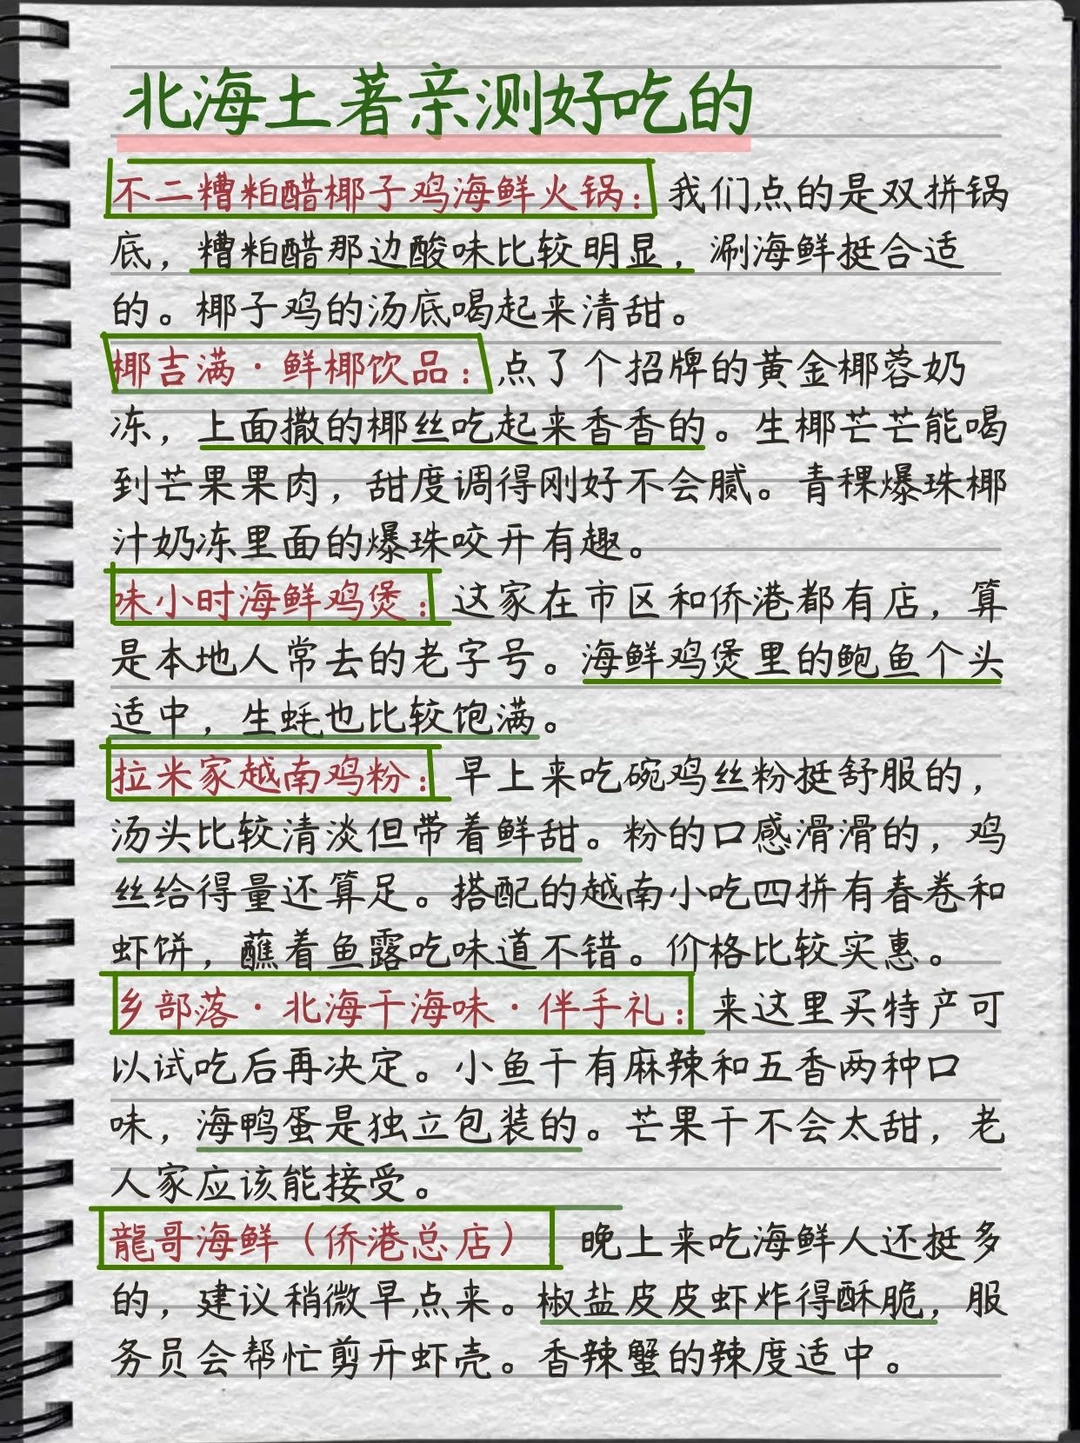 北海土著亲测好吃的
不二糟粕醋椰子鸡海鲜火锅：我们点的是双拼锅
底，糟粕醋那边酸味比较明显，涮海鲜挺合适
的。椰子鸡的汤底喝起来清甜。
椰吉满·鲜椰饮品：点了个招牌的黄金椰蓉奶
冻，上面撒的椰丝吃起来香香的。生椰芒芒能喝
到芒果果肉，甜度调得刚好不会腻。青稞爆珠椰
汁奶冻里面的爆珠咬开有趣。
味小时海鲜鸡煲：这家在市区和侨港都有店，算
是本地人常去的老字号。海鲜鸡煲里的鲍鱼个头
适中，生蚝也比较饱满。
拉米家越南鸡粉：早上来吃碗鸡丝粉挺舒服的，
汤头比较清淡但带着鲜甜。粉的口感滑滑的，鸡
丝给得量还算足。搭配的越南小吃四拼有春卷和
虾饼，蘸着鱼露吃味道不错。价格比较实惠。
乡部落·北海干海味·伴手礼：来这里买特产可
以试吃后再决定。小鱼干有麻辣和五香两种口
味，海鸭蛋是独立包装的。芒果干不会太甜，老
人家应该能接受。
龍哥海鲜（侨港总店） 晚上来吃海鲜人还挺多
的，建议稍微早点来。椒盐皮皮虾炸得酥脆，服
务员会帮忙剪开虾壳。香辣蟹的辣度适中。